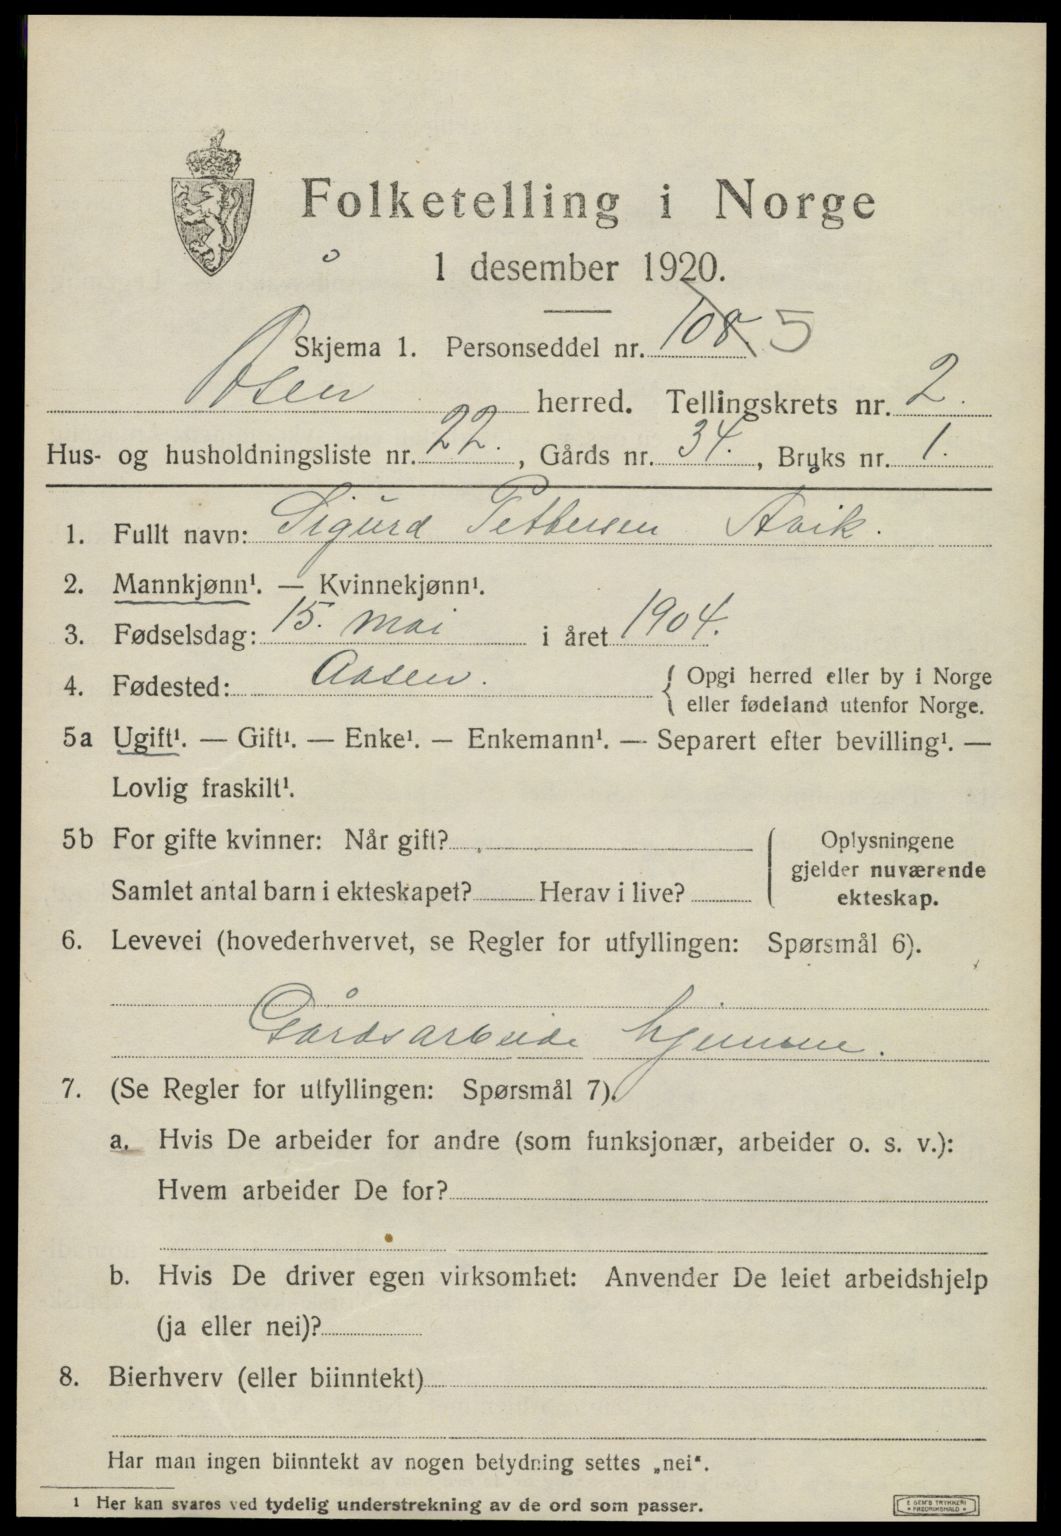 Folketelling i Norge
1 desember 1920.
Skjema 1. Personseddel nr. 108 5
Åsen herred. Tellingskrets nr. 2.
Hus- og husholdningsliste nr. 22., Gårds nr. 34., Bruks nr. 1.
1. Fullt navn: Sigurd Pettersen Avik.
2. Mannkjønn¹. — Kvinnekjønn¹.
3. Fødselsdag: 15. mai i året 1904.
4. Fødested: Aasen. { Opgi herred eller by i Norge
eller fødeland utenfor Norge.
5a Ugift¹. — Gift¹. — Enke¹. — Enkemann¹. — Separert efter bevilling¹. —
Lovlig fraskilt¹.
5b For gifte kvinner: Når gift?
Samlet antal barn i ekteskapet? Herav i live?
Oplysningene
gjelder nuværende
ekteskap.
6. Levevei (hovederhvervet, se Regler for utfyllingen: Spørsmål 6).
Gårdsarbeide hjemme.
7. (Se Regler for utfyllingen: Spørsmål 7).
a. Hvis De arbeider for andre (som funksjonær, arbeider o. s. v.):
Hvem arbeider De for?
b. Hvis De driver egen virksomhet: Anvender De leiet arbeidshjelp
(ja eller nei)?
8. Bierhverv (eller biinntekt)
Har man ingen biinntekt av nogen betydning settes „nei".
1 Her kan svares ved tydelig understrekning av de ord som passer.
E SEM'S TRYKKERI
FREDRIKSHALD